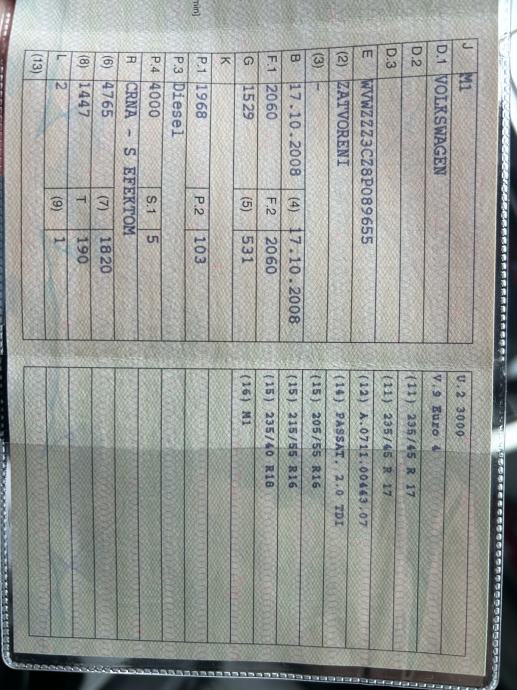 J M1
D.1 VOLKSWAGEN
D.2
D.3
E WVWZZZ3CZ8P089655
(2) ZATVORENI
(3) -
B 17.10.2008 (4) 17.10.2008
F.1 2060 F.2 2060
G 1529 (5) 531
K
P.1 1968 P.2 103
P.3 Diesel
P.4 4000 S.1 5
R CRNA - S EFEKTOM
(6) 4765 (7) 1820
(8) 1447 T 190
L 2 (9) 1
(13)
U.2 3000
V.9 Euro 4
(11) 235/45 R 17
(11) 235/45 R 17
(12) A.0711.00443.07
(14) PASSAT, 2.0 TDI
(15) 205/55 R16
(15) 215/55 R16
(15) 235/40 R18
(16) M1